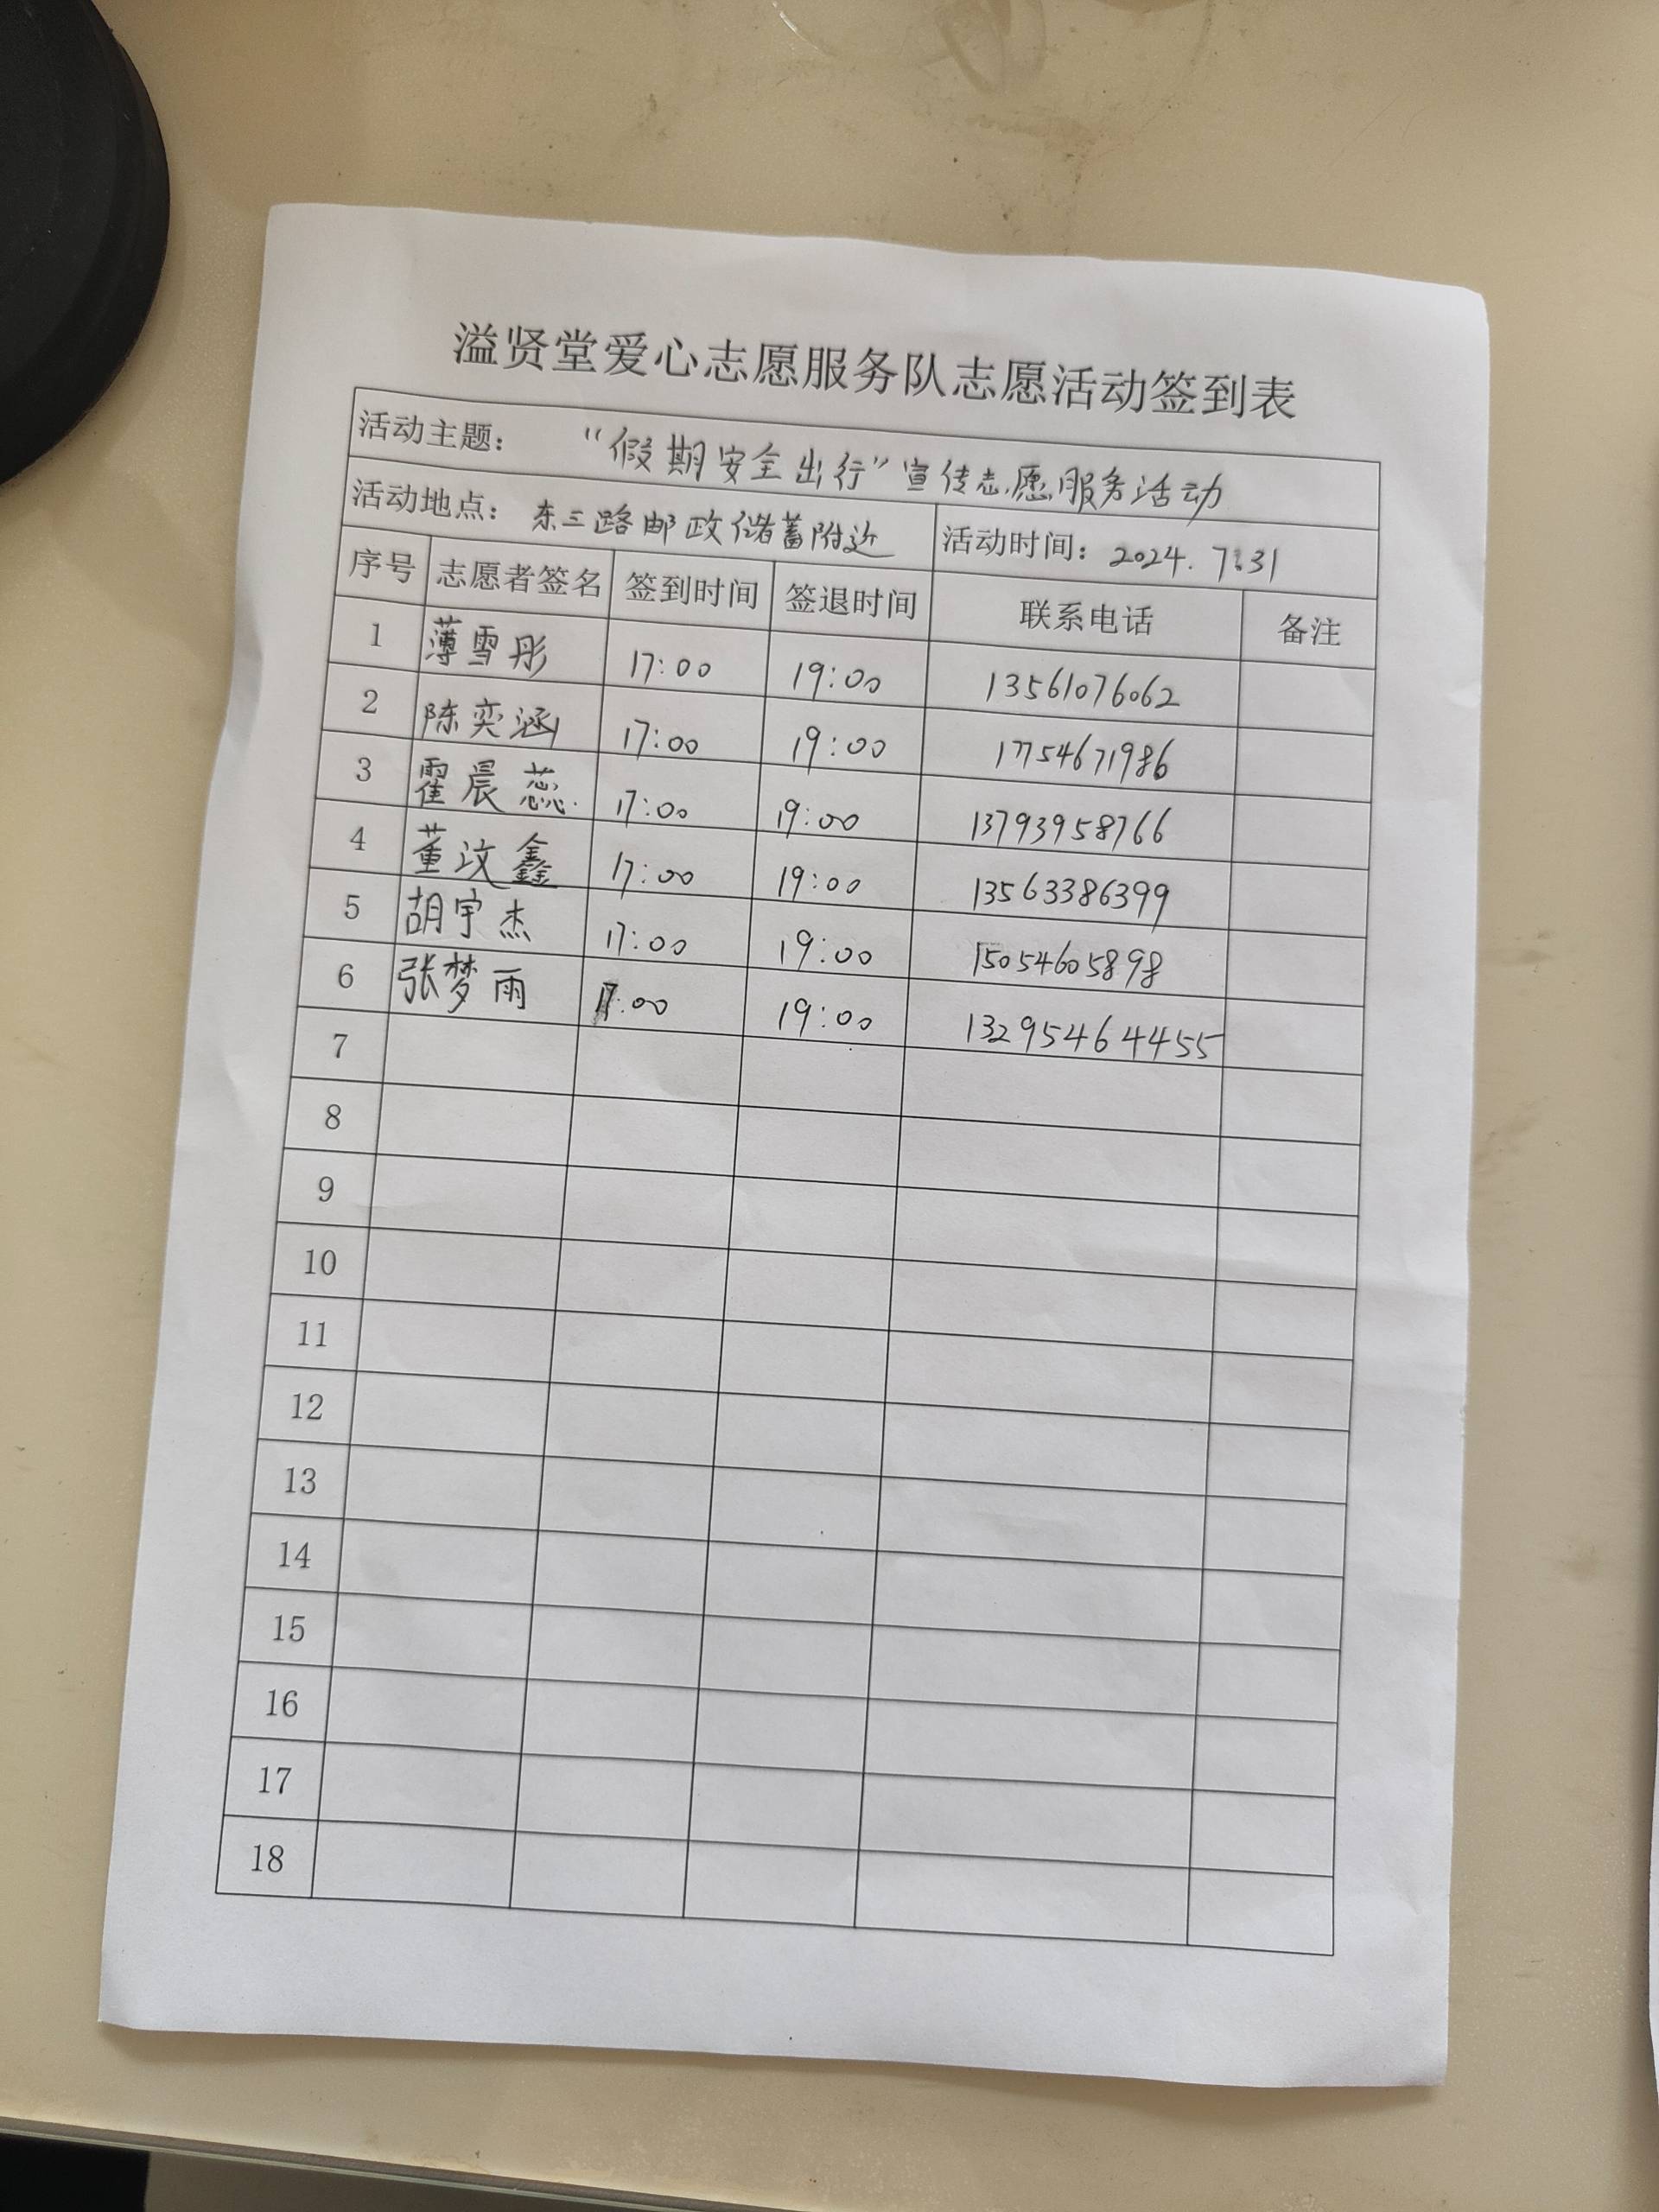 溢贤堂爱心志愿服务队志愿活动签到表
活动主题： “假期安全出行”宣传志愿服务活动
活动地点： 东三路邮政储蓄附近 活动时间： 2024.7.31
序号 志愿者签名 签到时间 签退时间 联系电话 备注
1 薄雪彤 17:00 19:00 13561076062
2 陈奕涵 17:00 19:00 17754671986
3 霍晨蕊 17:00 19:00 13793958766
4 董汶鑫 17:00 19:00 13563386399
5 胡宇杰 17:00 19:00 15054605898
6 张梦雨 17:00 19:00 13295464455
7
8
9
10
11
12
13
14
15
16
17
18